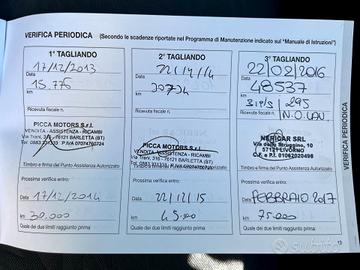 VERIFICA PERIODICA (Secondo le scadenze riportate nel Programma di Manutenzione indicato sul "Manuale di Istruzioni")
1° TAGLIANDO
17/12/2013
Data
15.775
km
Ricevuta fiscale n.
PICCA MOTORS S.r.l.
VENDITA - ASSISTENZA - RICAMBI
Via Trani, 76121 BARLETTA (BT)
Timbro e firma del Punto Assistenza Autorizzato
Prossima verifica entro:
17/12/2014
Data
30.000
km
Quale dei due limiti raggiunto prima
2° TAGLIANDO
22/12/14
Data
km
Ricevuta fiscale n.
PICCA MOTORS S.r.l.
VENDITA - ASSISTENZA - RICAMBI
Via Trani, 76121 BARLETTA (BT)
Timbro e firma del Punto Assistenza Autorizzato
Prossima verifica entro:
22/12/15
Data
km
Quale dei due limiti raggiunto prima
3° TAGLIANDO
22/02/2016
Data
48537
km
295
Ricevuta fiscale n.
NERICAR SRL
57121 LIVORNO
Timbro e firma del Punto Assistenza Autorizzato
Prossima verifica entro:
FEBBRAIO 2017
Data
75000
km
Quale dei due limiti raggiunto prima
VERIFICA PERIODICA
13